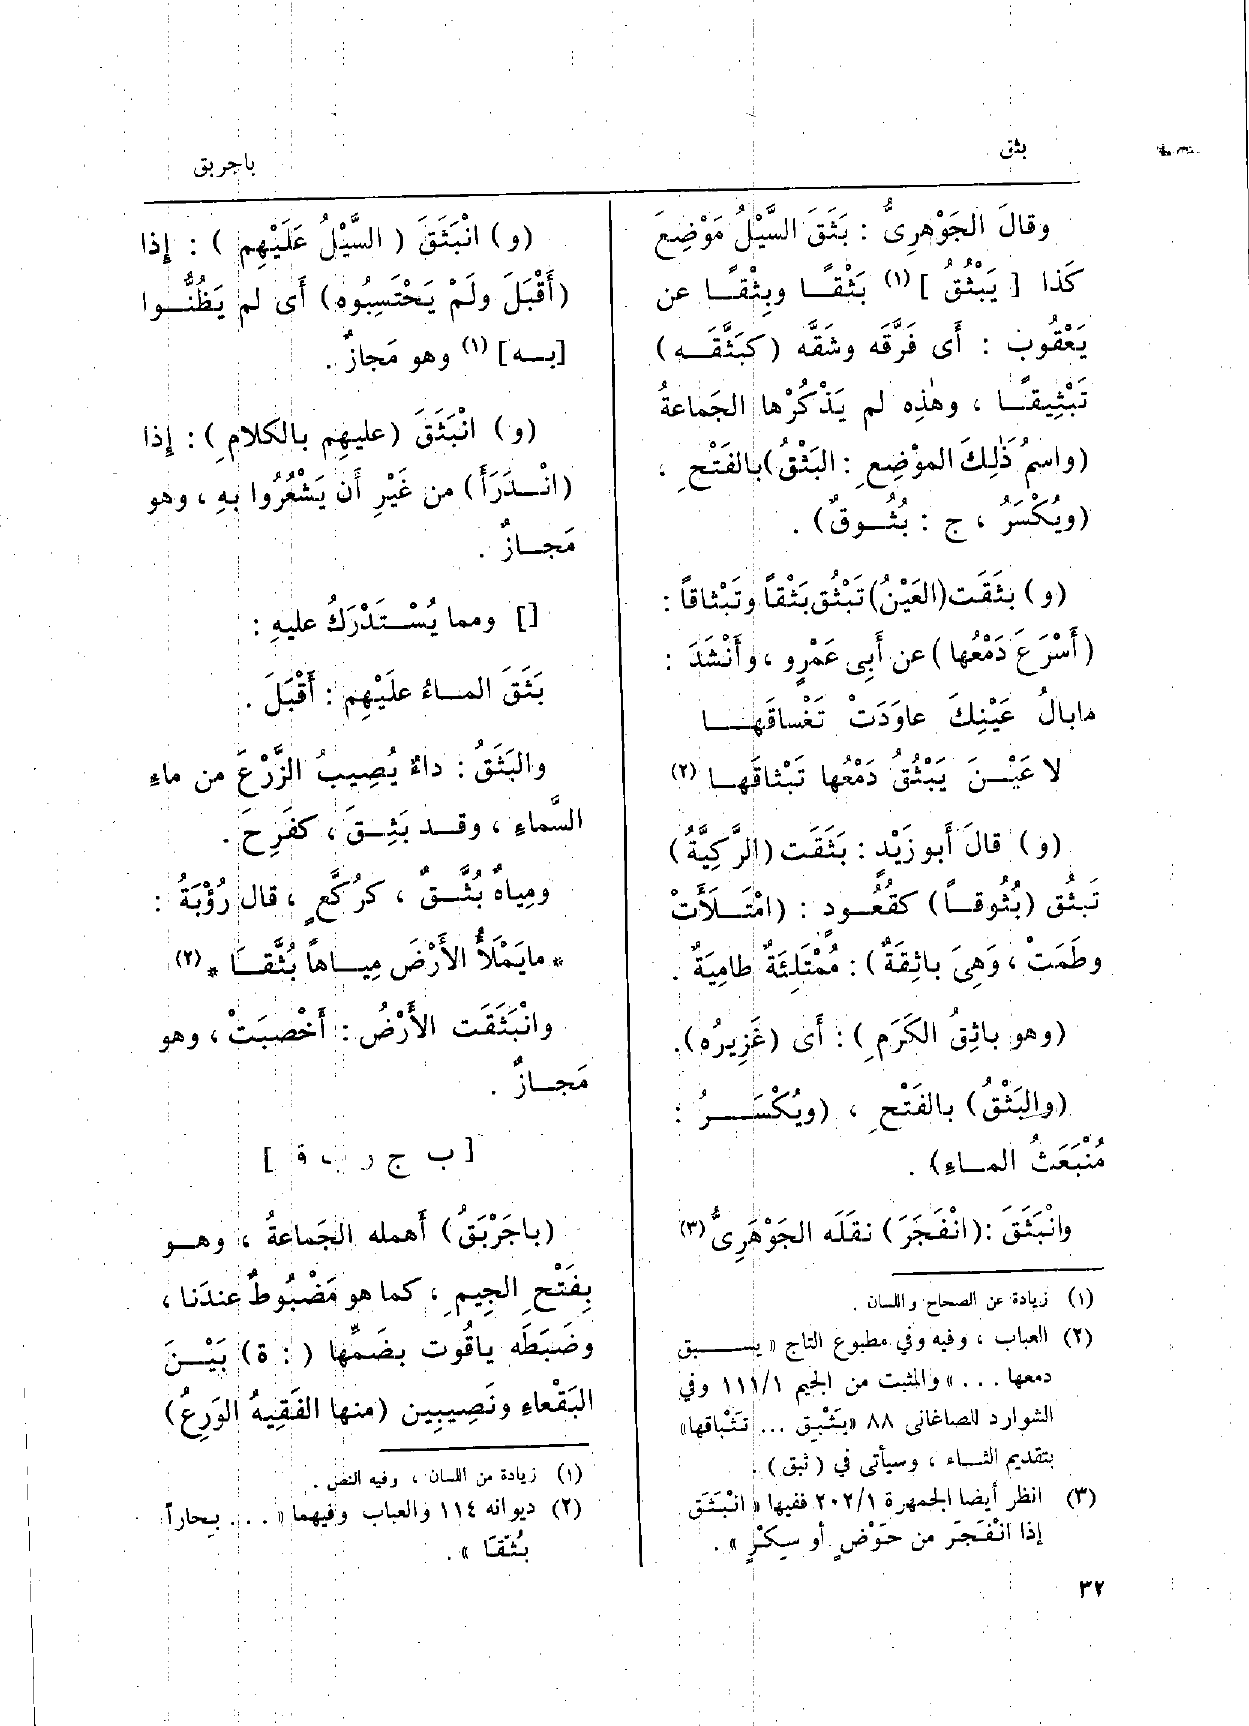 بثق
باجربق
وقالَ الجَوْهرِىُّ : بَثَقَ السَّيْلُ مَوْضِعَ
كَذا [ يَبْثُقُ ] (١) بَثْقًا وبِثْقًا عن
يَعْقُوب : أَى فَرَّقَه وشَقَّه (كبَثَّقَه)
تَبْثِيقًا ، وهٰذِه لم يَذْكُرْها الجَماعةُ
(واسمُ ذٰلِكَ الموْضِعِ : البَثْقُ) بالفَتْحِ ،
(ويُكْسَرُ ، ج : بُثُوقٌ) .
(و) بثَقَت (العَيْنُ) تَبْثُق بَثْقاً وتَبْثاقاً :
(أَسْرَعَ دَمْعُها) عن أَبِى عَمْرٍو ، وأَنْشَدَ :
مابالُ عَيْنِكَ عاوَدَتْ تَغْساقَها
لا عَيْنَ يَبْثُقُ دَمْعُها تَبْثاقَها (٢)
(و) قالَ أَبو زَيْدٍ : بَثَقَت (الرَّكِيَّةُ)
تَبثُق (بُثُوقاً) كقُعُودٍ : (امْتَلَأَتْ
وطَمَتْ ، وَهِىَ باثِقَةٌ) : مُمْتَلِئَةٌ طامِيَةٌ .
(وهو باثِقُ الكَرَمِ) : أَى (غَزِيرُه).
(والبَثْقُ) بالفَتْحِ ، (ويُكْسَرُ :
مُنْبَعَثُ الماءِ) .
وانْبَثَقَ : (انْفَجَرَ) نقَلَه الجَوْهَرِىُّ (٣)
(١) زيادة عن الصحاح واللسان .
(٢) العباب ، وفيه وفي مطبوع التاج « يسبق
دمعها . . . » والمثبت من الجيم ١١١/١ وفي
الشوارد للصاغانى ٨٨ «بَثْبِق ... تَثْباقها»
بتقديم الثاء ، وسيأتى في ( ثبق ) .
(٣) انظر أيضا الجمهرة ٢٠٢/١ ففيها « انْبَثَقَ
إذا انْفَجَرَ من حَوْضٍ أو سِكْرٍ » .
(و) انْبَثَقَ ( السَّيْلُ عَلَيْهِم ) : إِذا
(أَقْبَلَ ولَمْ يَحْتَسِبُوه) أَى لم يَظُنُّوا
[به] (١) وهو مَجازٌ .
(و) انْبَثَقَ (عليهِم بالكلامِ) : إِذا
(انْدَرَأَ) من غَيْرِ أَن يَشْعُرُوا بهِ ، وهو
مَجازٌ .
[] ومما يُسْتَدْرَكُ عليهِ :
بَثَقَ الماءُ علَيْهِم : أَقْبَلَ .
والبَثَقُ : داءٌ يُصِيبُ الزَّرْعَ من ماءِ
السَّماءِ ، وقد بَثِقَ ، كفَرِحَ .
ومِياهٌ بُثَّقٌ ، كرُكَّعٍ ، قال رُؤْبَةُ :
* مايَمْلَأُ الأَرْضَ مِياهاً بُثَّقَا * (٢)
وانْبَثَقَت الأَرْضُ : أَخْصبَتْ ، وهو
مَجازٌ .
[ ب ج ر ب ق ]
(باجَرْبَقُ) أَهمله الجَماعةُ ، وهو
بِفَتْحِ الجِيمِ ، كما هو مَضْبُوطٌ عندَنا ،
وضَبَطَه ياقُوت بضَمِّها ( : ة) بَيْنَ
البَقْعاءِ ونَصِيبِين (منها الفَقِيهُ الوَرِعُ)
(١) زيادة من اللسان ، وفيه النص .
(٢) ديوانه ١١٤ والعباب وفيهما « . . . بِحاراً
بُثَّقَا » .
٣٢